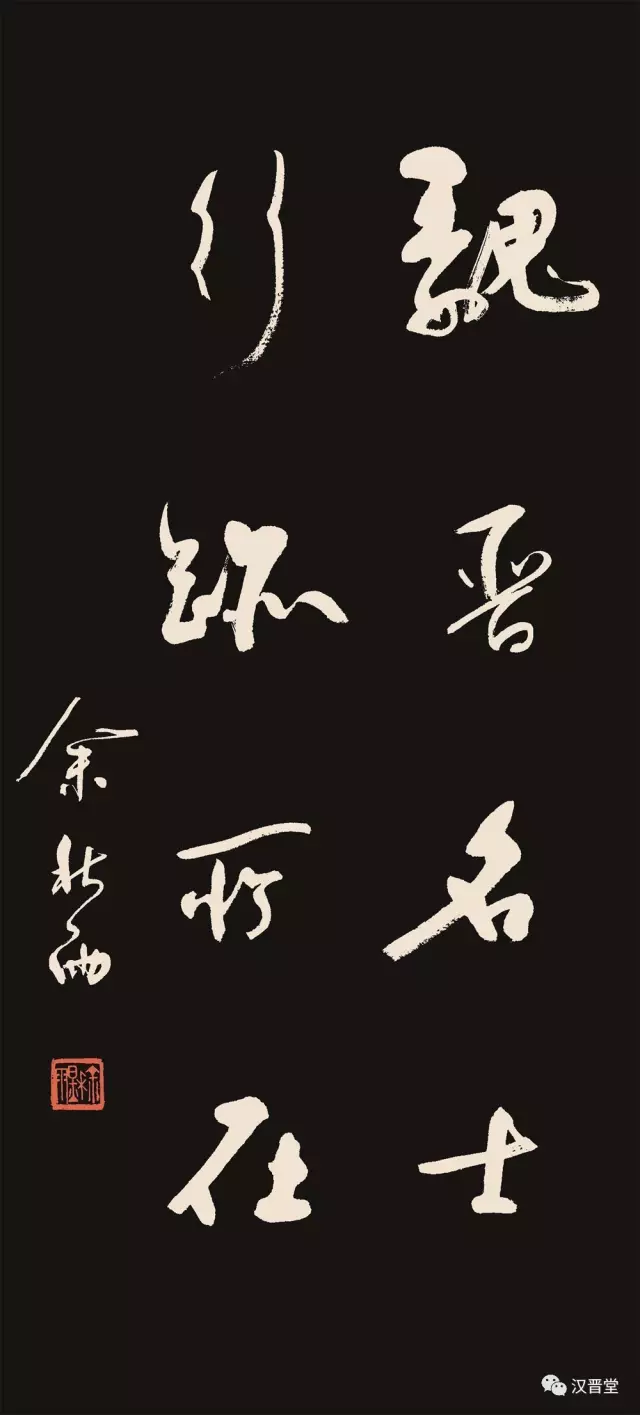 魏晋名士
行跡所在
余秋雨
汉晋堂